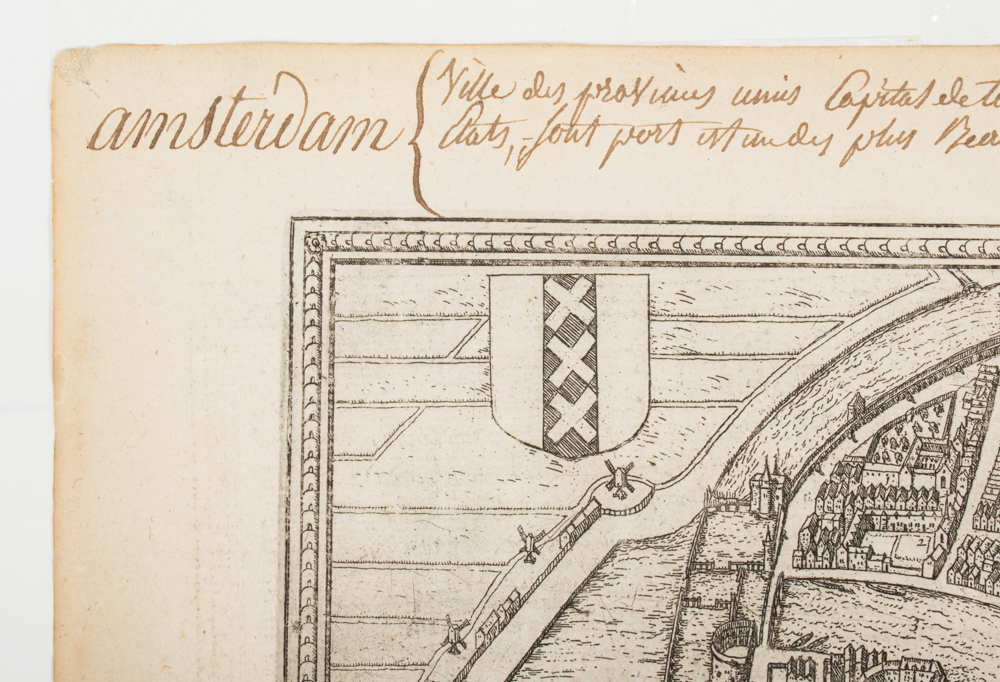 amsterdam
Ville des provinces unis Capital de to
Etats, sont port est un des plus Beau